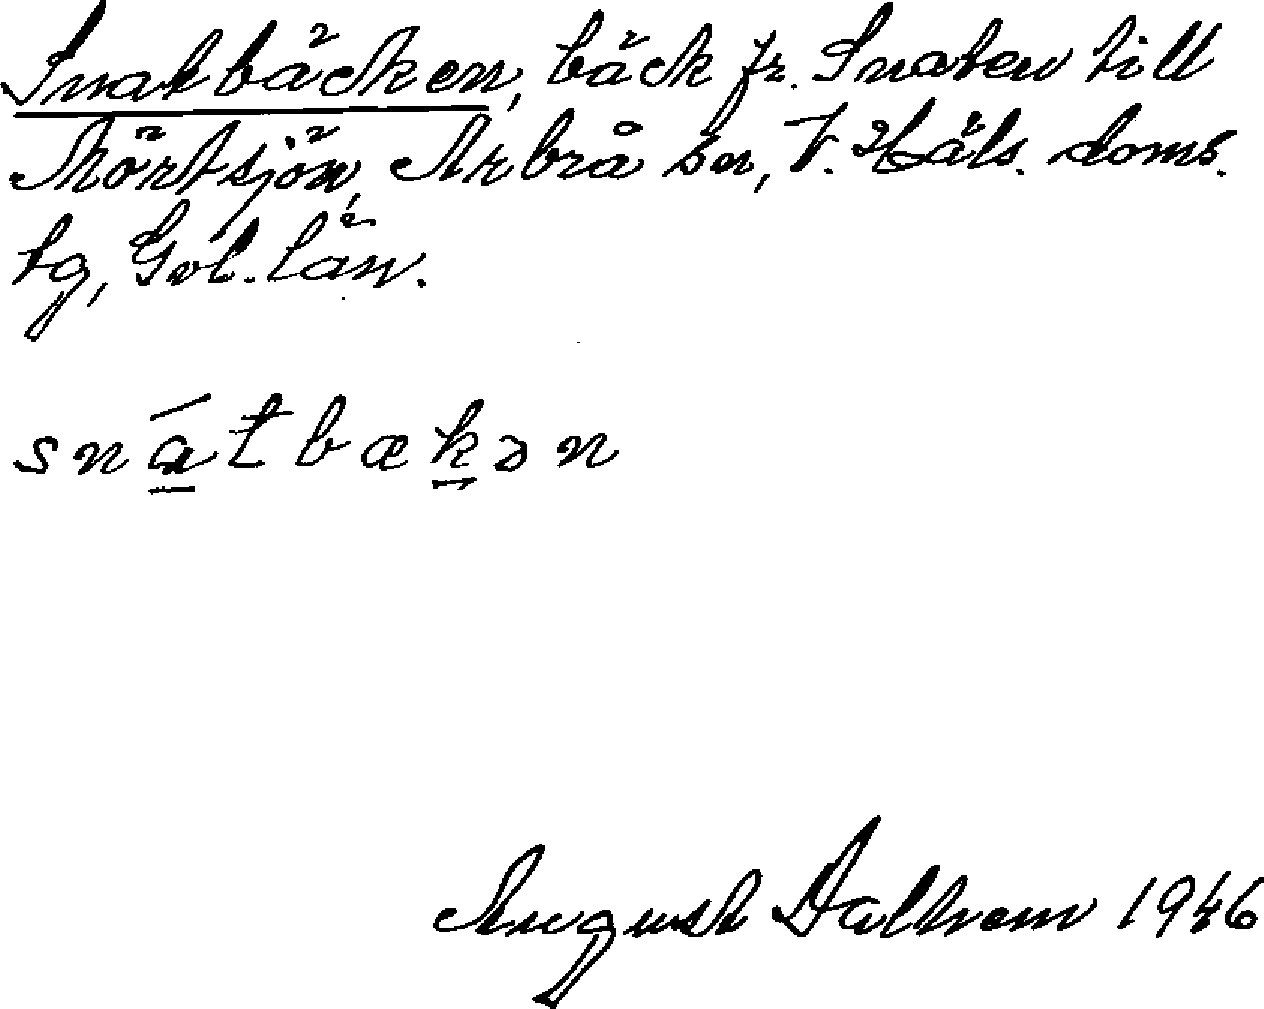 Snatbäcken, bäck fr. Snaten till
Mörtsjön, Arbrå sn, V. Häls. doms.
tg, Gvl. län.
snátbækən
August Dalhem 1946